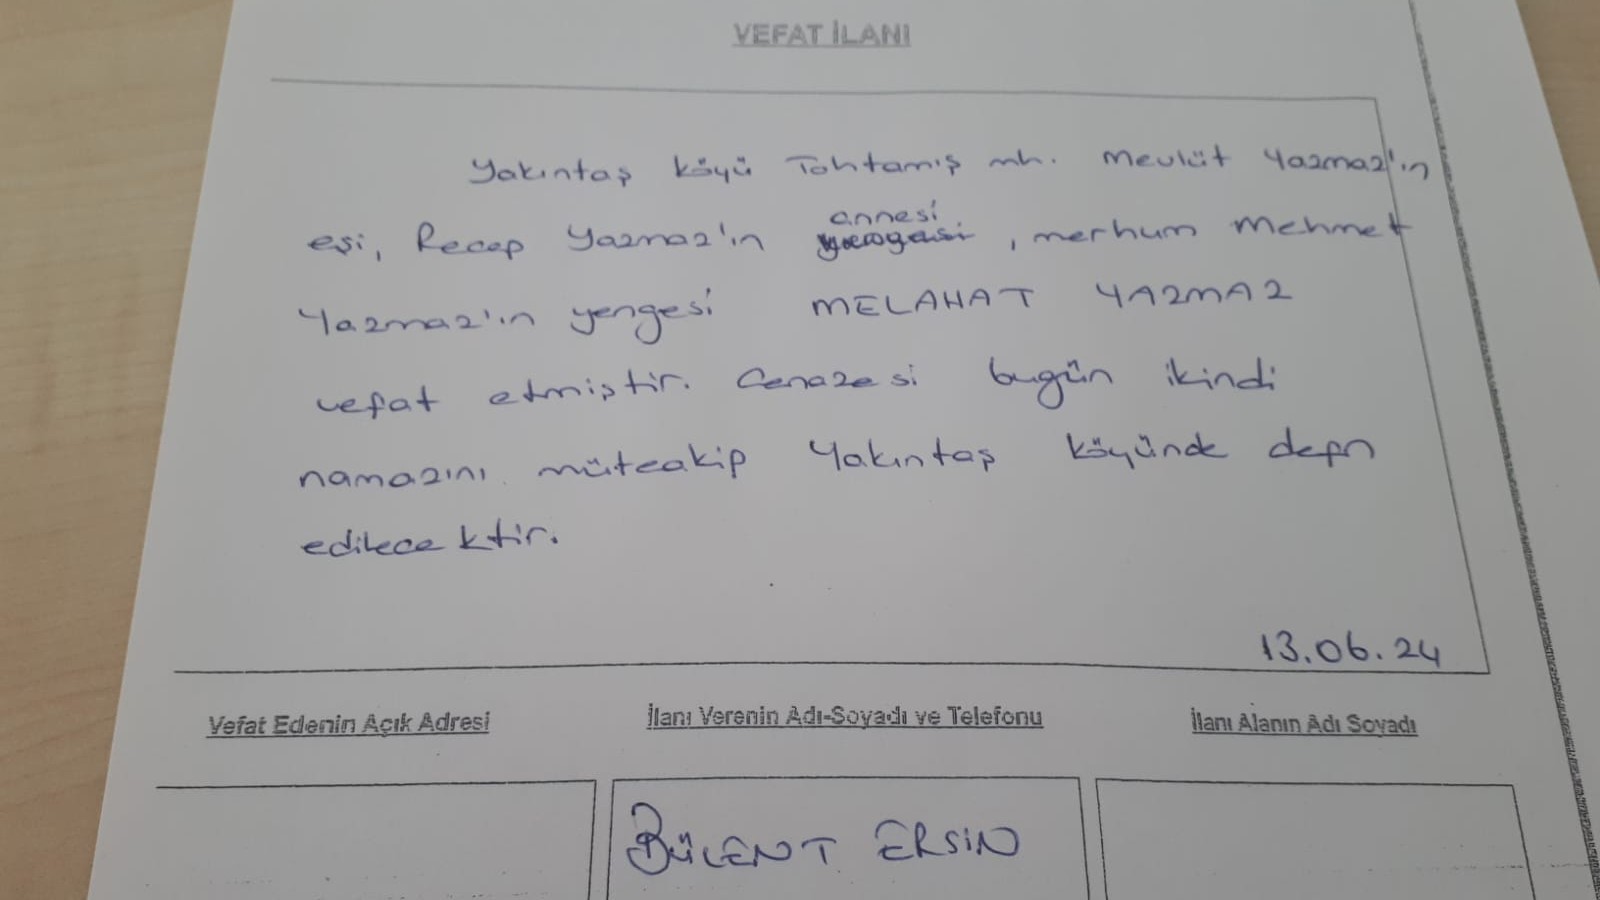 VEFAT İLANI
Yakıntaş köyü Tohtamış mh. Mevlüt Yazmaz'ın
eşi, Recep Yazmaz'ın annesi, merhum Mehmet
Yazmaz'ın yengesi MELAHAT YAZMAZ
vefat etmiştir. Cenazesi bugün ikindi
namazını müteakip Yakıntaş köyünde defn
edilecektir.
13.06.24
Vefat Edenin Açık Adresi
İlanı Verenin Adı-Soyadı ve Telefonu
İlanı Alanın Adı Soyadı
BÜLENT ERSİN